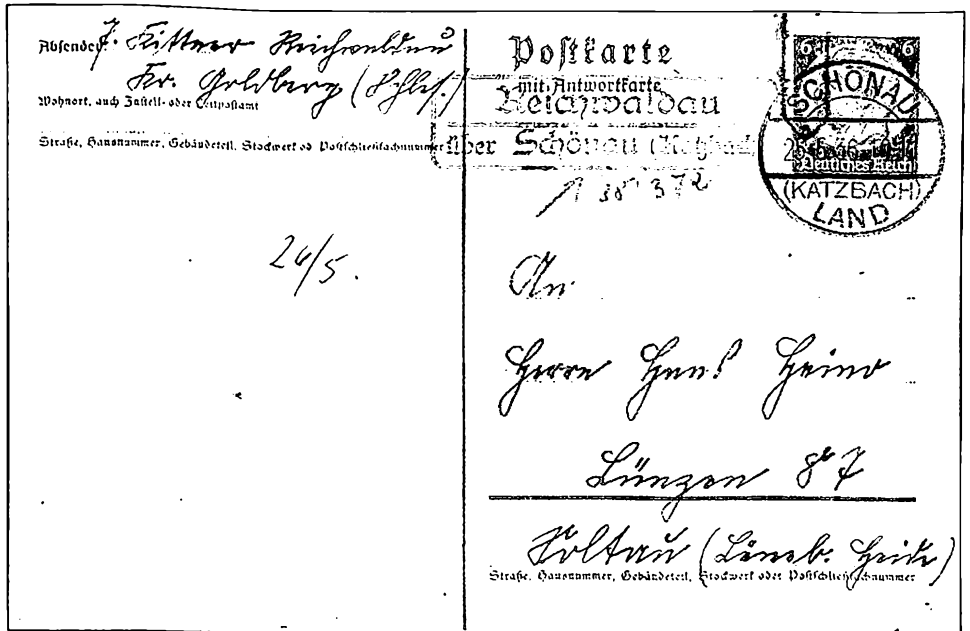 Absender: J. Kittner Reichwaldau
Kr. Goldberg (Schles.)
Wohnort, auch Zustell- oder Leitpostamt
Straße, Hausnummer, Gebäudeteil, Stockwerk od Postschließfachnummer
26/5.
Postkarte
mit Antwortkarte
Reichwaldau
über Schönau (Katzbach)
6 6
SCHÖNAU
Deutsches Reich
(KATZBACH)
LAND
372
An
Herrn Hans
Lünzen
Soltau (Lüneb. Heide)
Straße, Hausnummer, Gebäudeteil, Stockwerk oder Postschließfachnummer